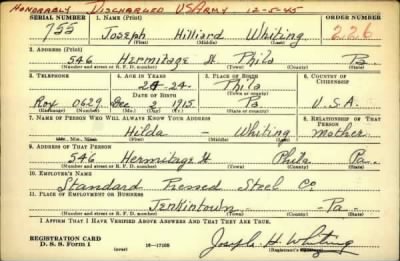 HONORABLY DISCHARGED US ARMY 12-5-45
SERIAL NUMBER 1. NAME (Print) ORDER NUMBER
755 Joseph Hilliard Whiting 226
(First) (Middle) (Last)
2. ADDRESS (Print)
546 Hermitage St Phila Pa
(Number and street or R. F. D. number) (Town) (County) (State)
3. TELEPHONE 4. AGE IN YEARS 5. PLACE OF BIRTH 6. COUNTRY OF CITIZENSHIP
24 Phila
DATE OF BIRTH (Town or county)
Rox 0629 Dec 2 1915 Pa U.S.A.
(Exchange) (Number) (Mo.) (Day) (Yr.) (State or country)
7. NAME OF PERSON WHO WILL ALWAYS KNOW YOUR ADDRESS 8. RELATIONSHIP OF THAT PERSON
Hilda - Whiting Mother
(Mr., Mrs., Miss) (First) (Middle) (Last)
9. ADDRESS OF THAT PERSON
546 Hermitage St Phila Pa
(Number and street or R. F. D. number) (Town) (County) (State)
10. EMPLOYER'S NAME
Standard Pressed Steel Co
11. PLACE OF EMPLOYMENT OR BUSINESS
Jenkintown Pa
(Number and street or R. F. D. number) (Town) (County) (State)
I AFFIRM THAT I HAVE VERIFIED ABOVE ANSWERS AND THAT THEY ARE TRUE.
REGISTRATION CARD
D. S. S. Form 1 (over) 16-17105 Joseph H. Whiting
(Registrant's signature)